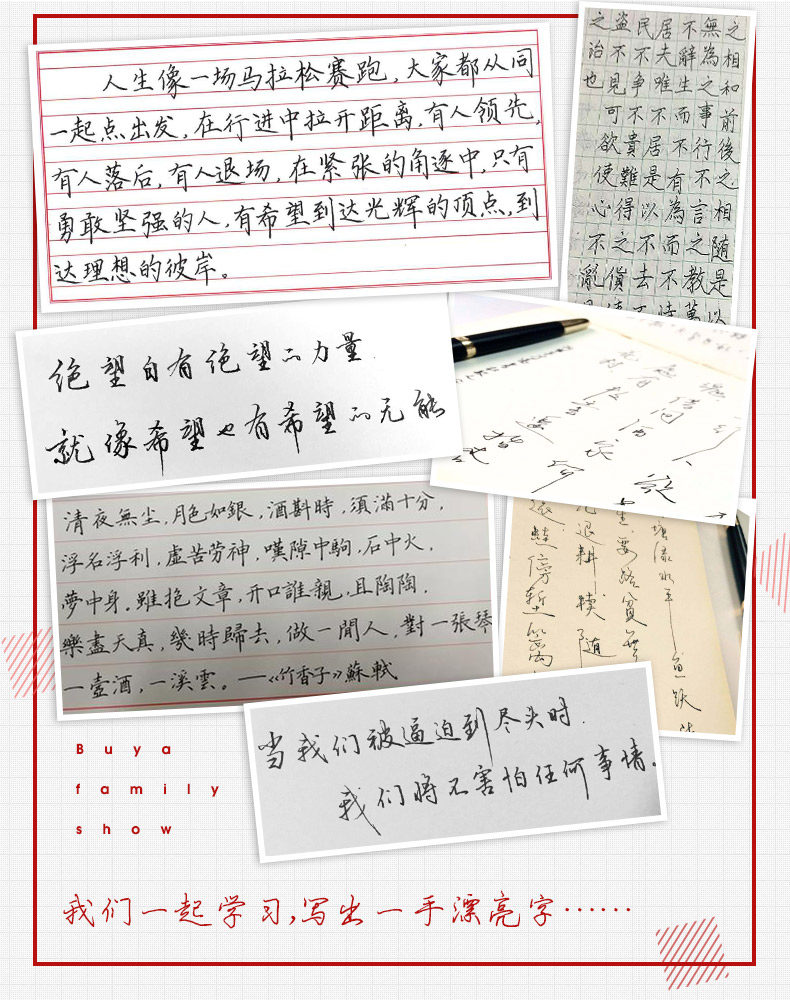 人生像一场马拉松赛跑,大家都从同
一起点出发,在行进中拉开距离,有人领先,
有人落后,有人退场,在紧张的角逐中,只有
勇敢坚强的人,有希望到达光辉的顶点,到
达理想的彼岸。
之相和前後之相随是以
無為之事行不言之教萬
不辭生而不有為而不恃
居夫唯不居是以不去不
民不争不貴難得之貨使
盗不見可欲使心不亂
之治也
绝望自有绝望的力量.
就像希望也有希望的无能
清夜無尘,月色如銀,酒斟時,須滿十分,
浮名浮利,虚苦劳神,嘆隙中駒,石中火,
夢中身。雖抱文章,开口誰親,且陶陶,
樂盡天真,幾時歸去,做一閒人,對一張琴
一壺酒,一溪雲。—《竹香子》蘇軾
当我们被逼迫到尽头时.
我们将不害怕任何事情。
Buya
family
show
我们一起学习,写出一手漂亮字……